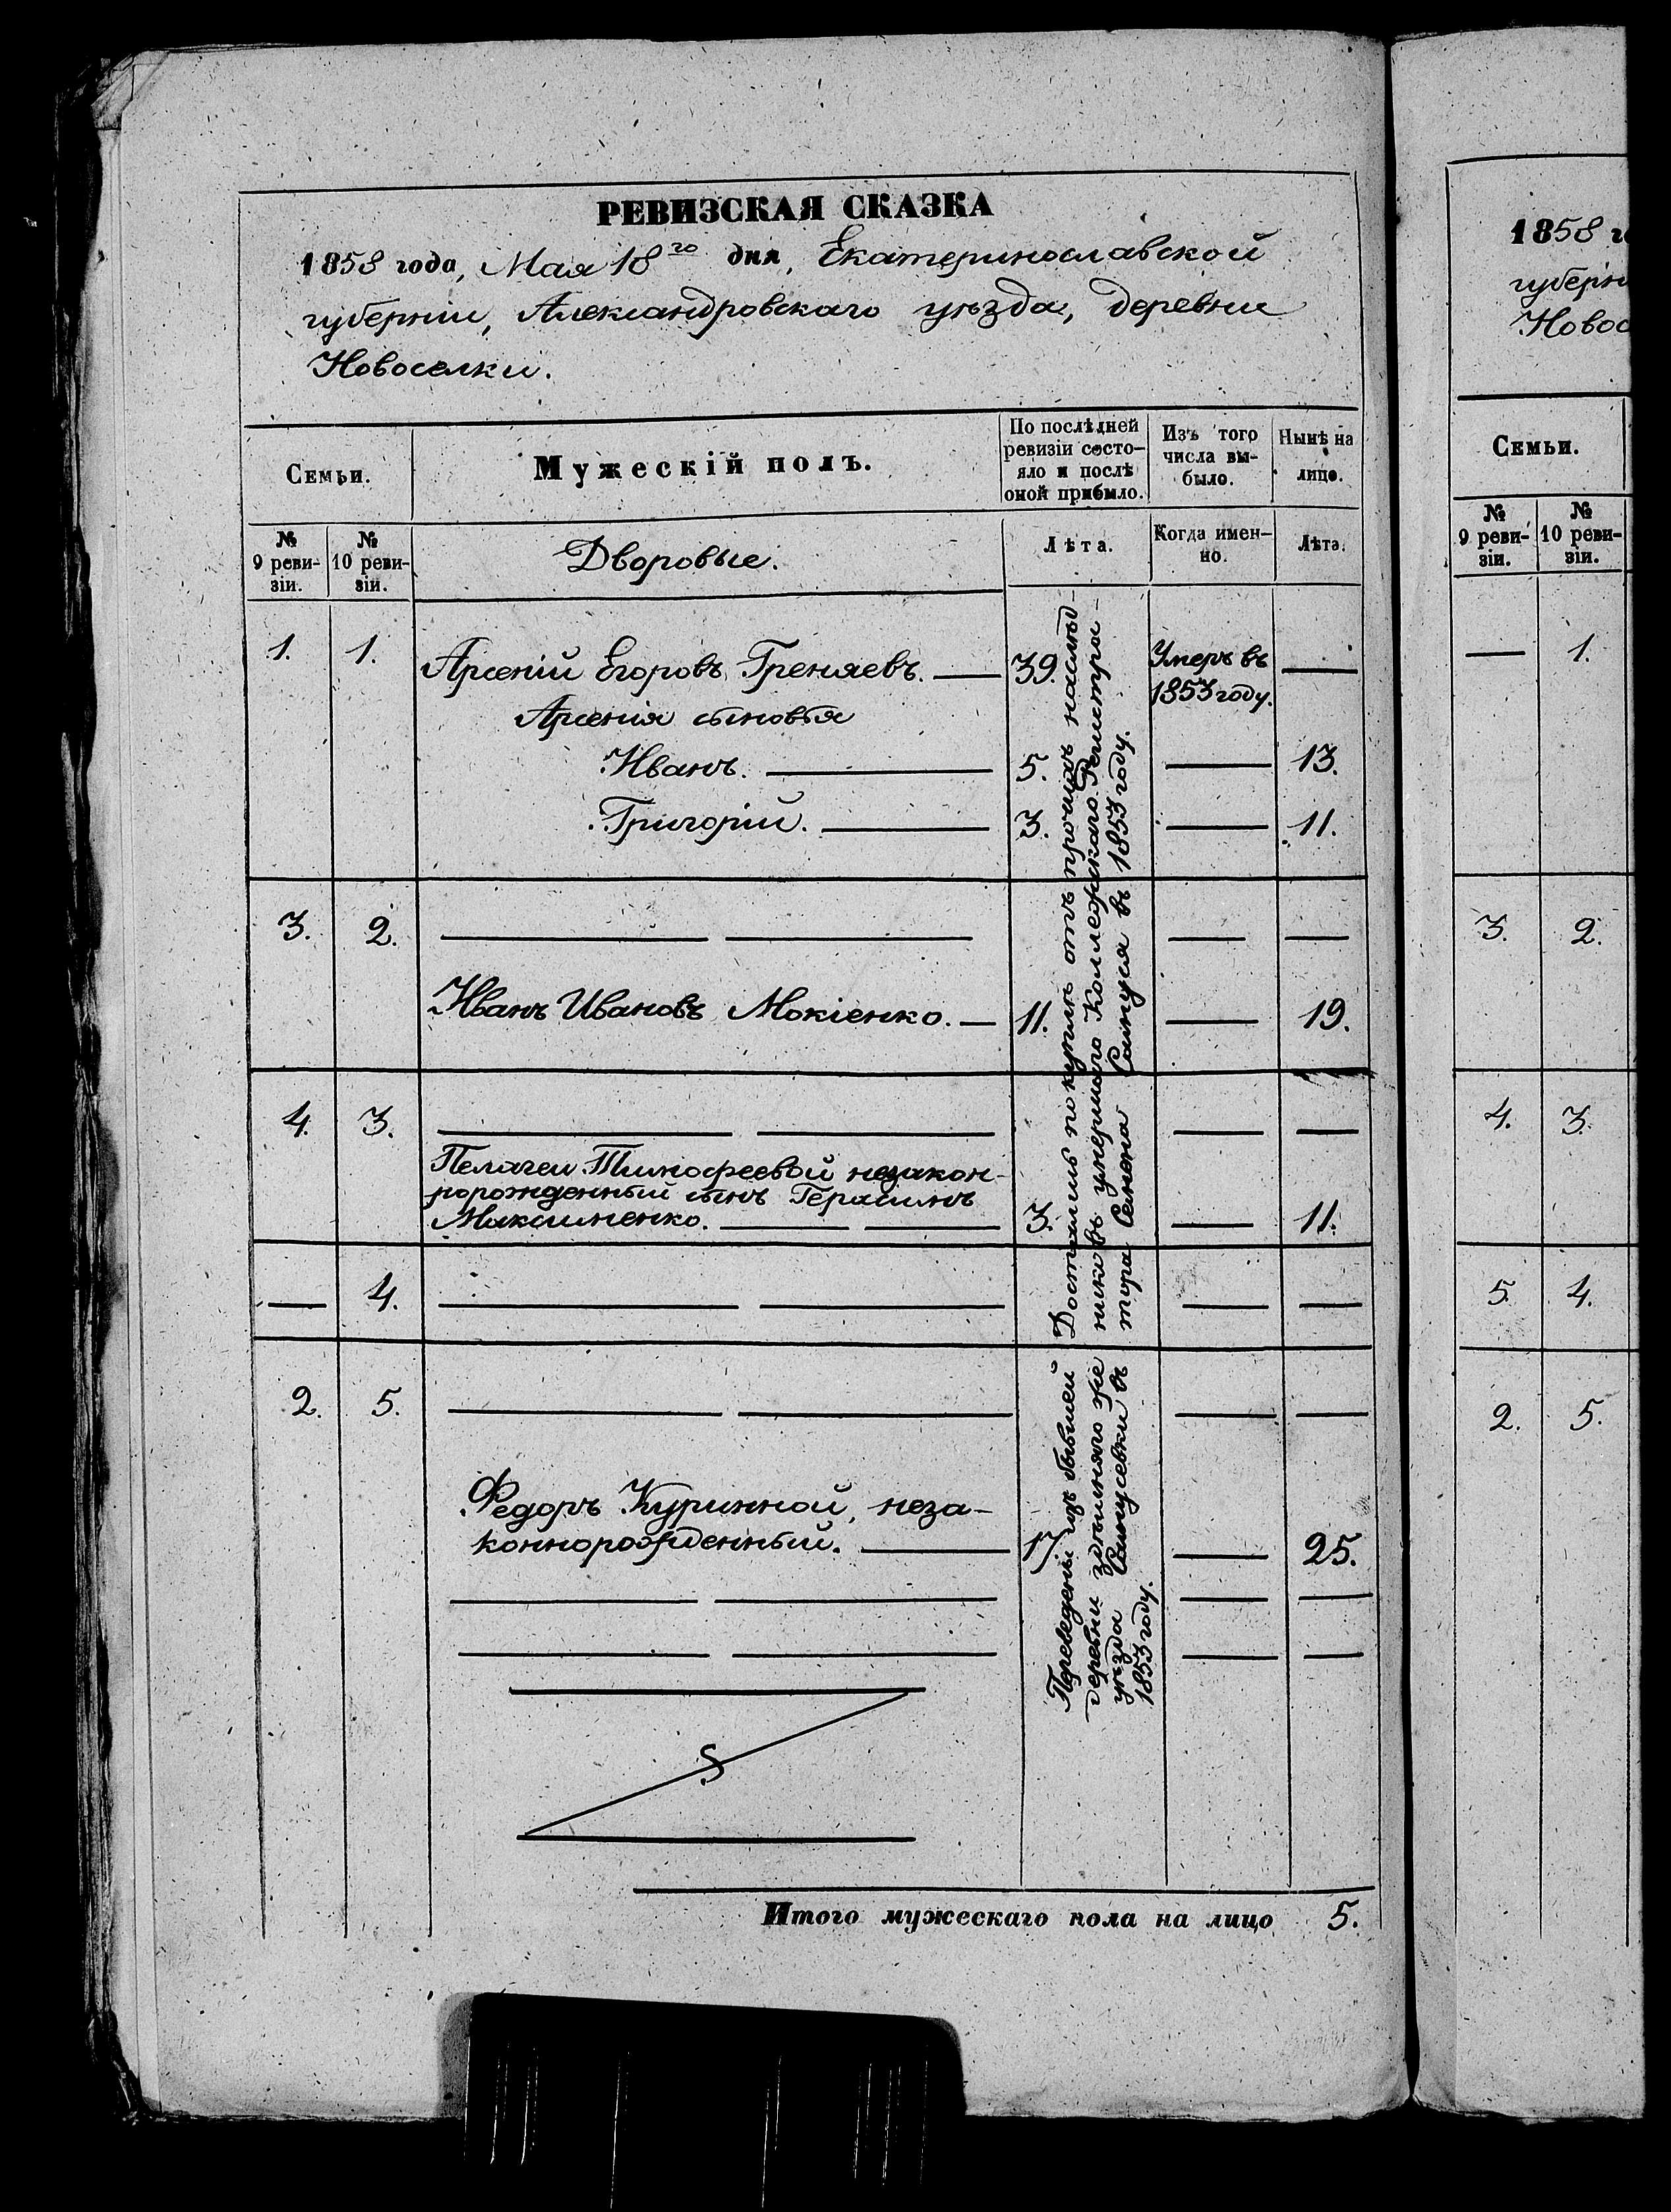 РЕВИЗСКАЯ СКАЗКА
1858 года, Мая 18го дня, Екатеринославской
губерніи, Александровскаго уѣзда, деревни
Новоселки.
Семьи.
Мужескій полъ.
По послѣдней
ревизіи состо-
яло и послѣ
оной прибыло.
Изъ того
числа вы-
было.
Нынѣ на
лицо.
№
9 реви-
зіи.
№
10 реви-
зіи.
Дворовые.
Лѣта.
Когда имен-
но.
Лѣта.
1. 1. Арсеній Егоровъ Греняевъ. — 39. Умеръ въ —
1853 году.
Арсенія сыновья
Иванъ. — 5. — 13.
Григорій. — 3. — 11.
3. 2. — — — —
Иванъ Ивановъ Мокіенко. — 11. — 19.
4. 3. — — — —
Пелагеи Тимофеевой незакон-
норожденный сынъ Герасимъ
Максименко. — — 3. — 11.
— 4. — — — —
Достались покупкѣ отъ прочихъ наслѣд-
никовъ умершаго Коллежскаго Регистра-
тора Семена Сапуся въ 1853 году.
2. 5. — — — —
Федоръ Куринной, неза-
коннорожденный. — 17. — 25.
— — — —
— — — —
Переведены изъ бывшей
деревни здѣшняго же
уѣзда Сапусевки въ
1853 году.
Итого мужескаго пола на лицо 5.
1858 г
губерн
Новос
Семьи.
№
9 реви-
зіи.
№
10 реви-
зіи.
— 1.
3. 2.
4. 3.
5. 4.
2. 5.